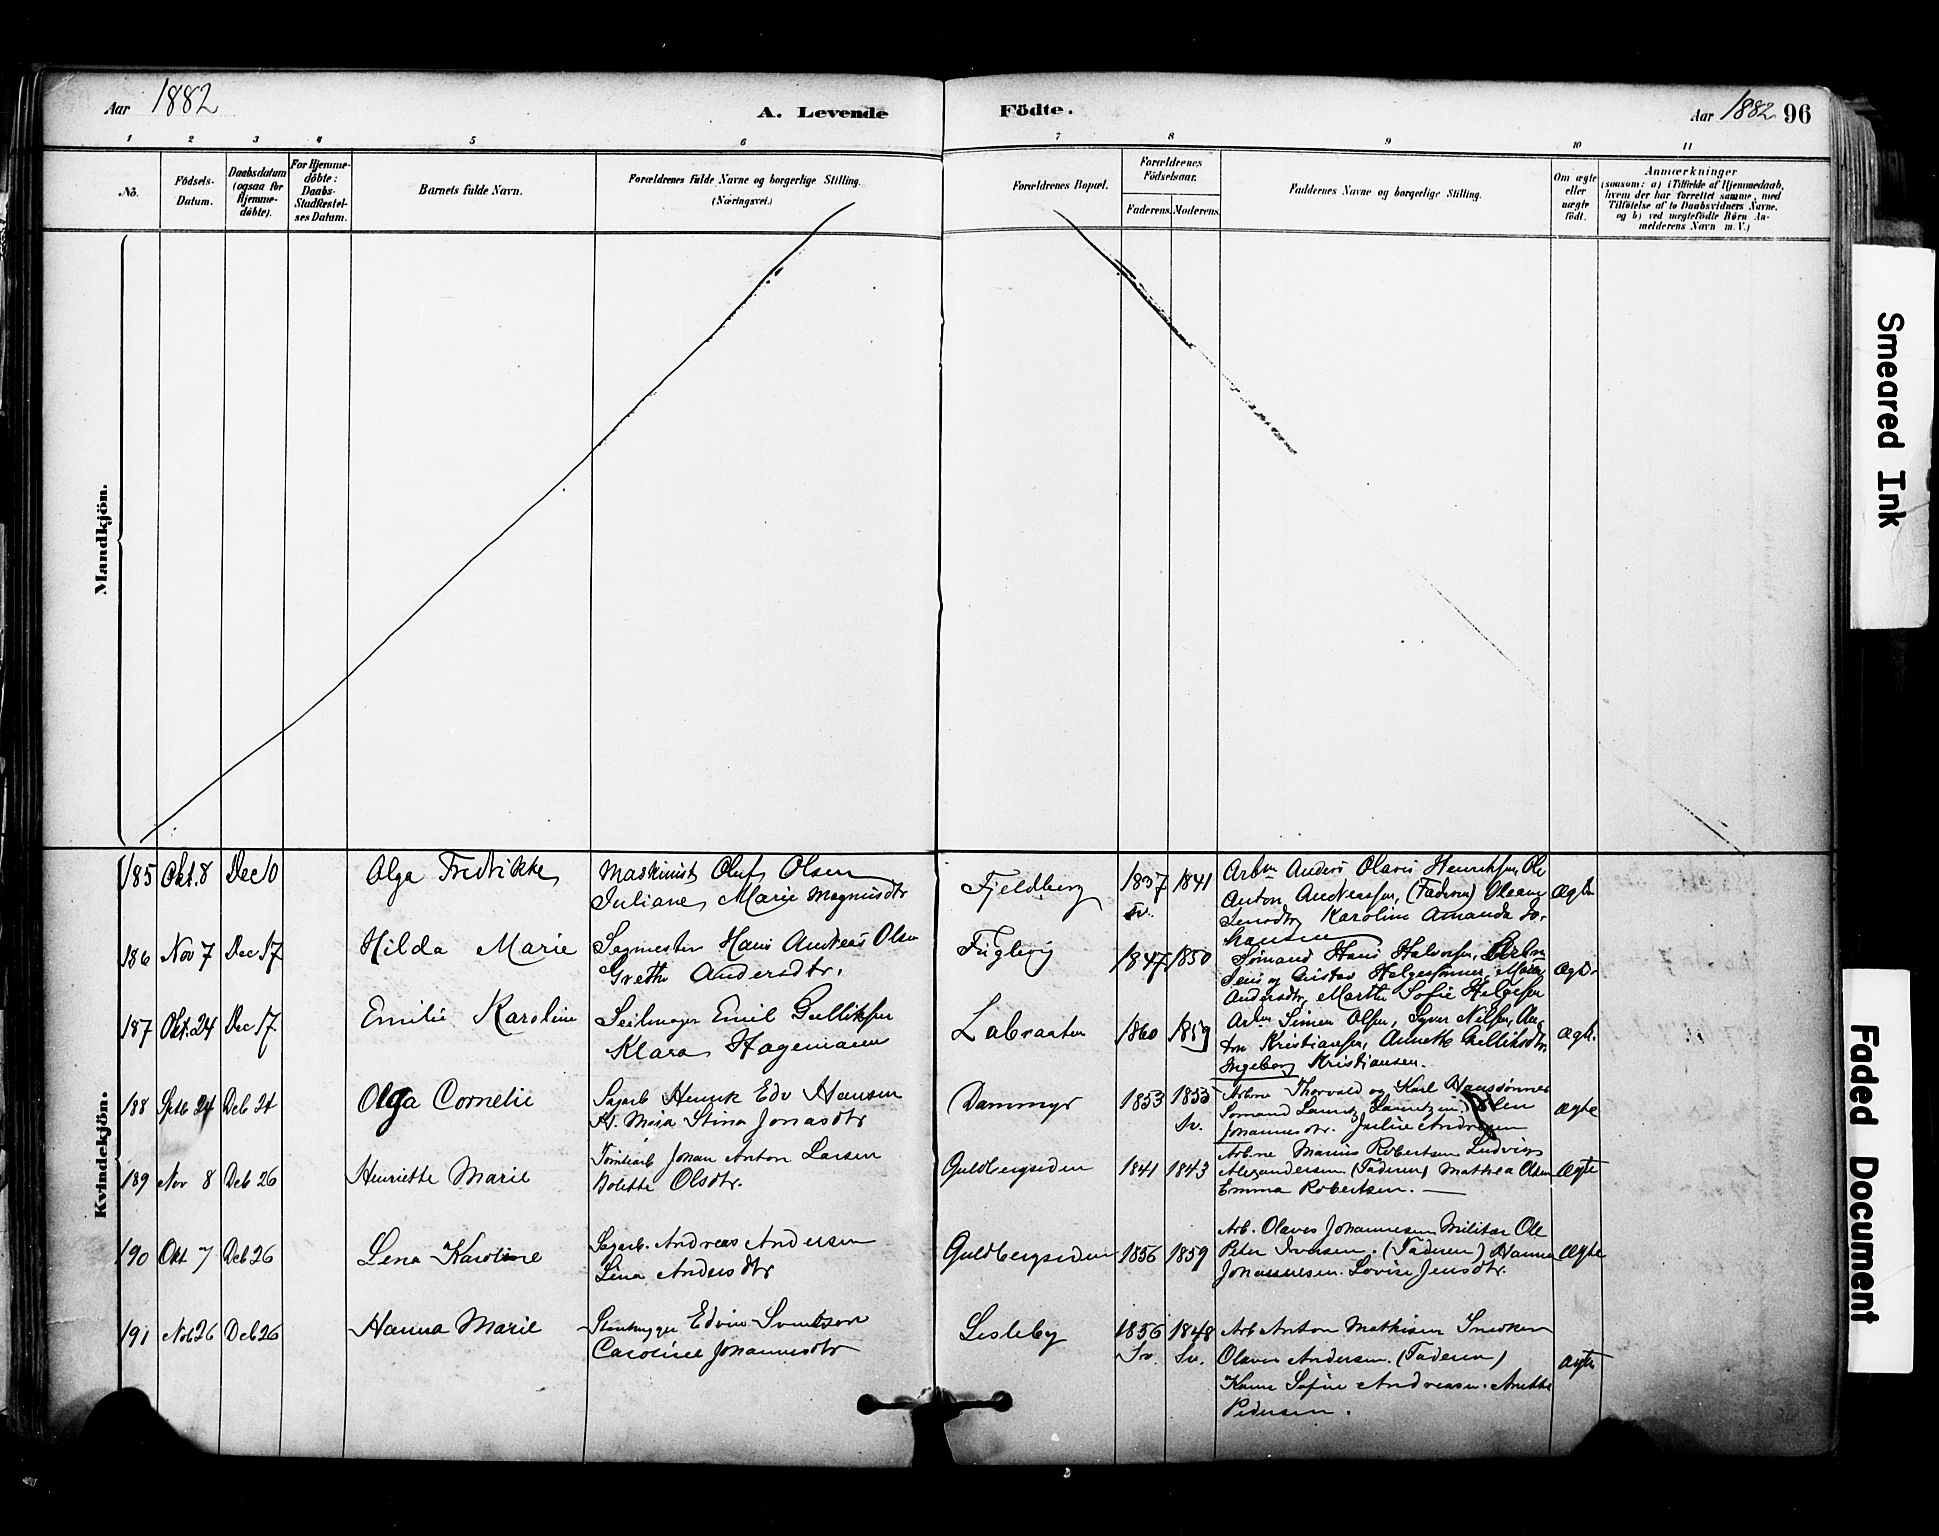 Aar 1882
A. Levende
Födte.
Aar 1882 96
1 2 3 4 5 6 7 8 9 10 11
No.
Födsels-
Datum.
Daabsdatum
(ogsaa for
Hjemme-
döbte).
For Hjemme-
döbte:
Daabs-
Stadfestel-
ses Datum.
Barnets fulde Navn.
Forældrenes fulde Navne og borgerlige Stilling.
(Næringsvei.)
Forældrenes Bopæl.
Forældrenes
Födselsaar.
Faderens. Moderens.
Faddernes Navne og borgerlige Stilling.
Om ægte
eller
uægte
födt.
Anmærkninger
(saasom: a) i Tilfælde af Hjemmedaab,
hvem der har forrettet samme, med
Tilföielse af to Daabsvidners Navne.
og b) ved uægtefödte Börn An-
melderens Navn m.V.)
Mandkjön.
Kvindekjön.
185 Okt. 8 Dec 10 Olga Fredrikke
Maskinist Oluf Olsen
Juliane Marie Magnusdtr
Fjeldberg
1837 1841
Sv.
Arbm Anders Olavis Henriksen, Ole
Anton Andreassen, (Faderen)
Karoline Amanda Jo-
hansen
Ægte
186 Nov 7 Dec 17 Hilda Marie
Sagmester Hans Andreas Olsen
Grethe Andersdtr.
Fuglevig
1847 1850
Sömand Hans Halvorsen, Arbm
Jens og Gustav Helgesönner, Maren
Andersdtr, Marthe Sofie Helgesen
Ægte
187 Okt. 24 Dec 17 Emilie Karoline
Seilmager Emil Gulliksen
Klara Hagemann
Labraaten
1860 1859
Arbm Simen Olsen, Syver Nilsen, An-
ton Kristiansen, Annette Gulliksdtr,
Ingeborg Kristiansen.
Ægte
188 Septb 24 Deb 24 Olga Cornelie
Sagarb Henrik Edv Hansen
Stina Jonasdtr
Dammyr
1853 1853
Sv.
Arbne Thorvald og Karl Hanssönner
Sömand Lauritz Lauritzen
Johannesdtr. Julie Andresen
Ægte
189 Nov 8 Deb 26 Henriette Marie
Tömtearb Johan Anton Larsen
Bolette Olsdtr.
Guldbergseden
1841 1843
Arbne Marius Robertsen Ludvig
Alexandersen (Faderen) Mathea Olsen
Emma Robertsen.
Ægte
190 Okt 7 Deb 26 Lena Karoline
Sagarb. Andreas Andersen
Lina Andersdtr
Guldbergseden
1856 1859
Arb. Olaves Johannesen Militær Ole
Peter Iversen. (Faderen) Hanna
Johannesen. Lovise Jensdtr.
Ægte
191 Nob 26 Deb 26 Hanna Marie
Stenhugger Edvin Svendson
Caroline Johannesdtr
Lisleby
1856 1848
Sv. Sv.
Arb Anton Mathisen Snedker
Olaves Andersen. (Faderen)
Sofie Andreasen. Anette
Pedersen.
ægte
Smeared Ink
Faded Document